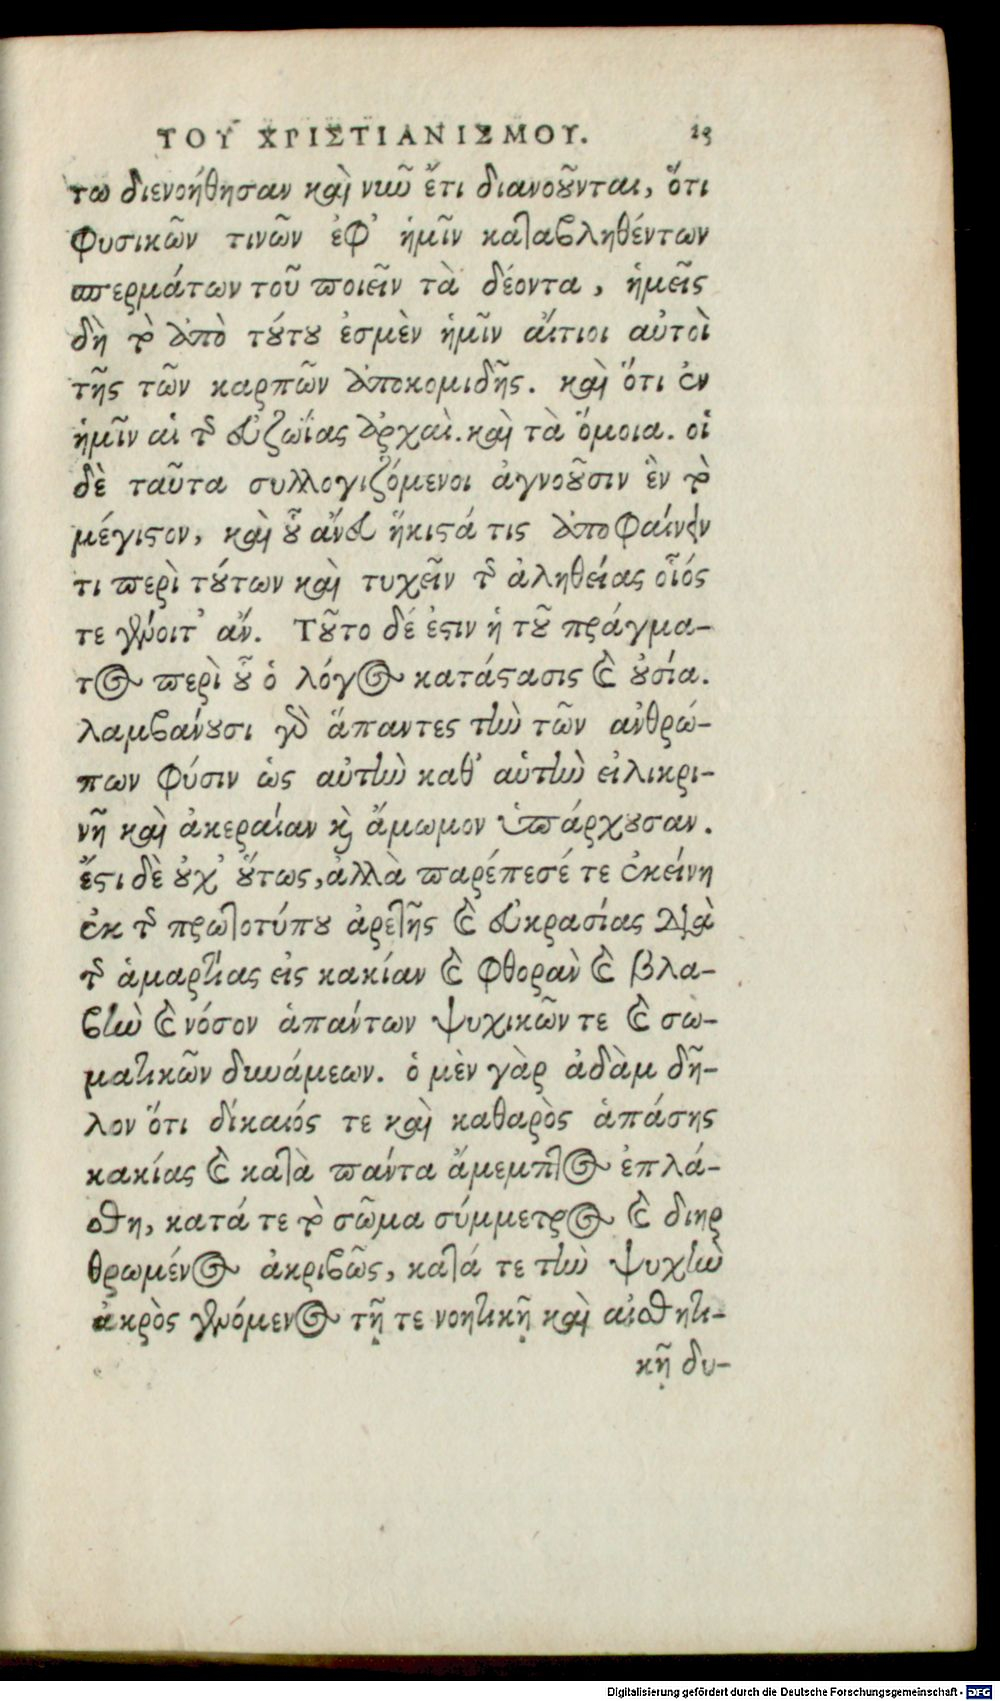 ΤΟΥ ΧΡΙΣΤΙΑΝΙΣΜΟΥ. 13
τω διενοήθησαν καὶ νῦν ἔτι διανοοῦνται, ὅτι
φυσικῶν τινῶν ἐφ’ ἡμῖν καταβληθέντων
σπερμάτων τοῦ ποιεῖν τὰ δέοντα, ἡμεῖς
δὴ τὸ ἀπὸ τούτου ἐσμὲν ἡμῖν αἴτιοι αὐτοὶ
τῆς τῶν καρπῶν ἀποκομιδῆς. καὶ ὅτι ἐν
ἡμῖν αἱ τῆς εὐζωΐας ἀρχαὶ. καὶ τὰ ὅμοια. οἱ
δὲ ταῦτα συλλογιζόμενοι ἀγνοοῦσιν ἓν τὸ
μέγιστον, καὶ οὗ ἄνευ ἥκιστά τις ἀποφαίνειν
τι περὶ τούτων καὶ τυχεῖν τῆς ἀληθείας οἷός
τε γένοιτ’ ἄν. Τοῦτο δέ ἐστιν ἡ τοῦ πράγμα-
τος περὶ οὗ ὁ λόγος κατάστασις καὶ οὐσία.
λαμβάνουσι γὰρ ἅπαντες τὴν τῶν ἀνθρώ-
πων φύσιν ὡς αὐτὴν καθ’ αὑτὴν εἰλικρι-
νῆ καὶ ἀκεραίαν καὶ ἄμωμον ὑπάρχουσαν.
ἔστι δὲ οὐχ’ οὕτως, ἀλλὰ παρέπεσέ τε ἐκείνη
ἐκ τῆς πρωτοτύπου ἀρετῆς καὶ εὐκρασίας διὰ
τῆς ἁμαρτίας εἰς κακίαν καὶ φθορὰν καὶ βλα-
βὴν καὶ νόσον ἁπάντων ψυχικῶν τε καὶ σω-
ματικῶν δυνάμεων. ὁ μὲν γὰρ ἀδὰμ δῆ-
λον ὅτι δίκαιός τε καὶ καθαρὸς ἁπάσης
κακίας καὶ κατὰ πάντα ἄμεμπτος ἐπλά-
σθη, κατά τε τὸ σῶμα σύμμετρος καὶ διηρ
θρωμένος ἀκριβῶς, κατά τε τὴν ψυχὴν
ἀκρὸς γενόμενος τῇ τε νοητικῇ καὶ αἰσθητι-
κῇ δυ-
Digitalisierung gefördert durch die Deutsche Forschungsgemeinschaft - DFG